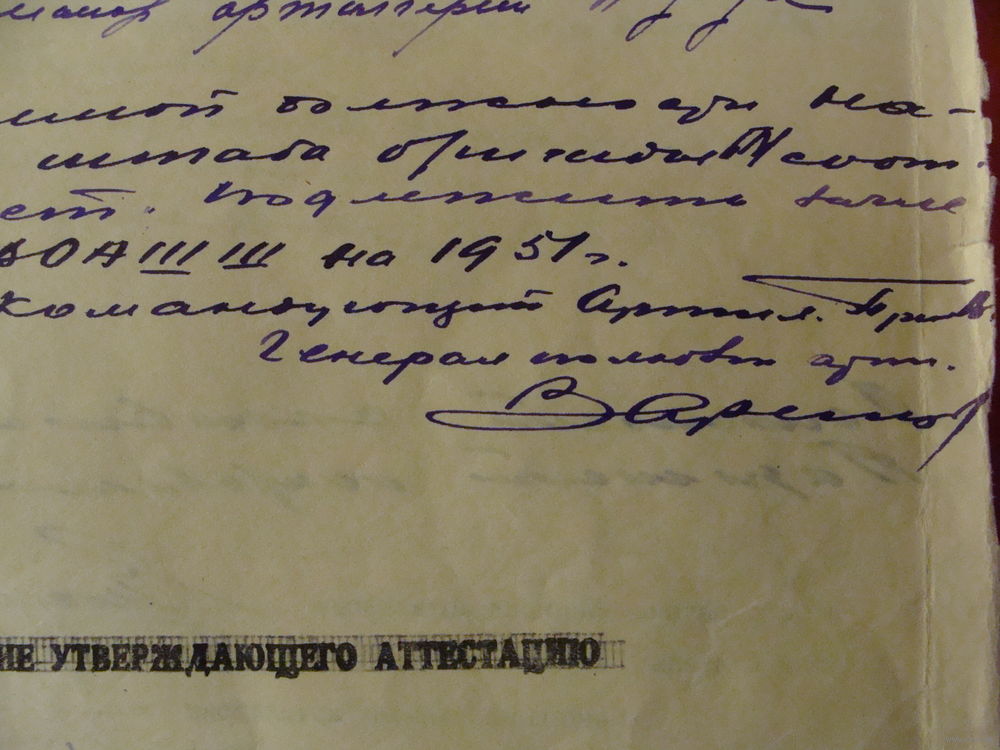 майор артиллерии
мой должности на-
штаба бригады соот.
ст. Подлежит зачис
ВОА III Ш на 1951 г.
Командующий Артил. При
Генерал полковн арт.
ИЕ УТВЕРЖДАЮЩЕГО АТТЕСТАЦИЮ